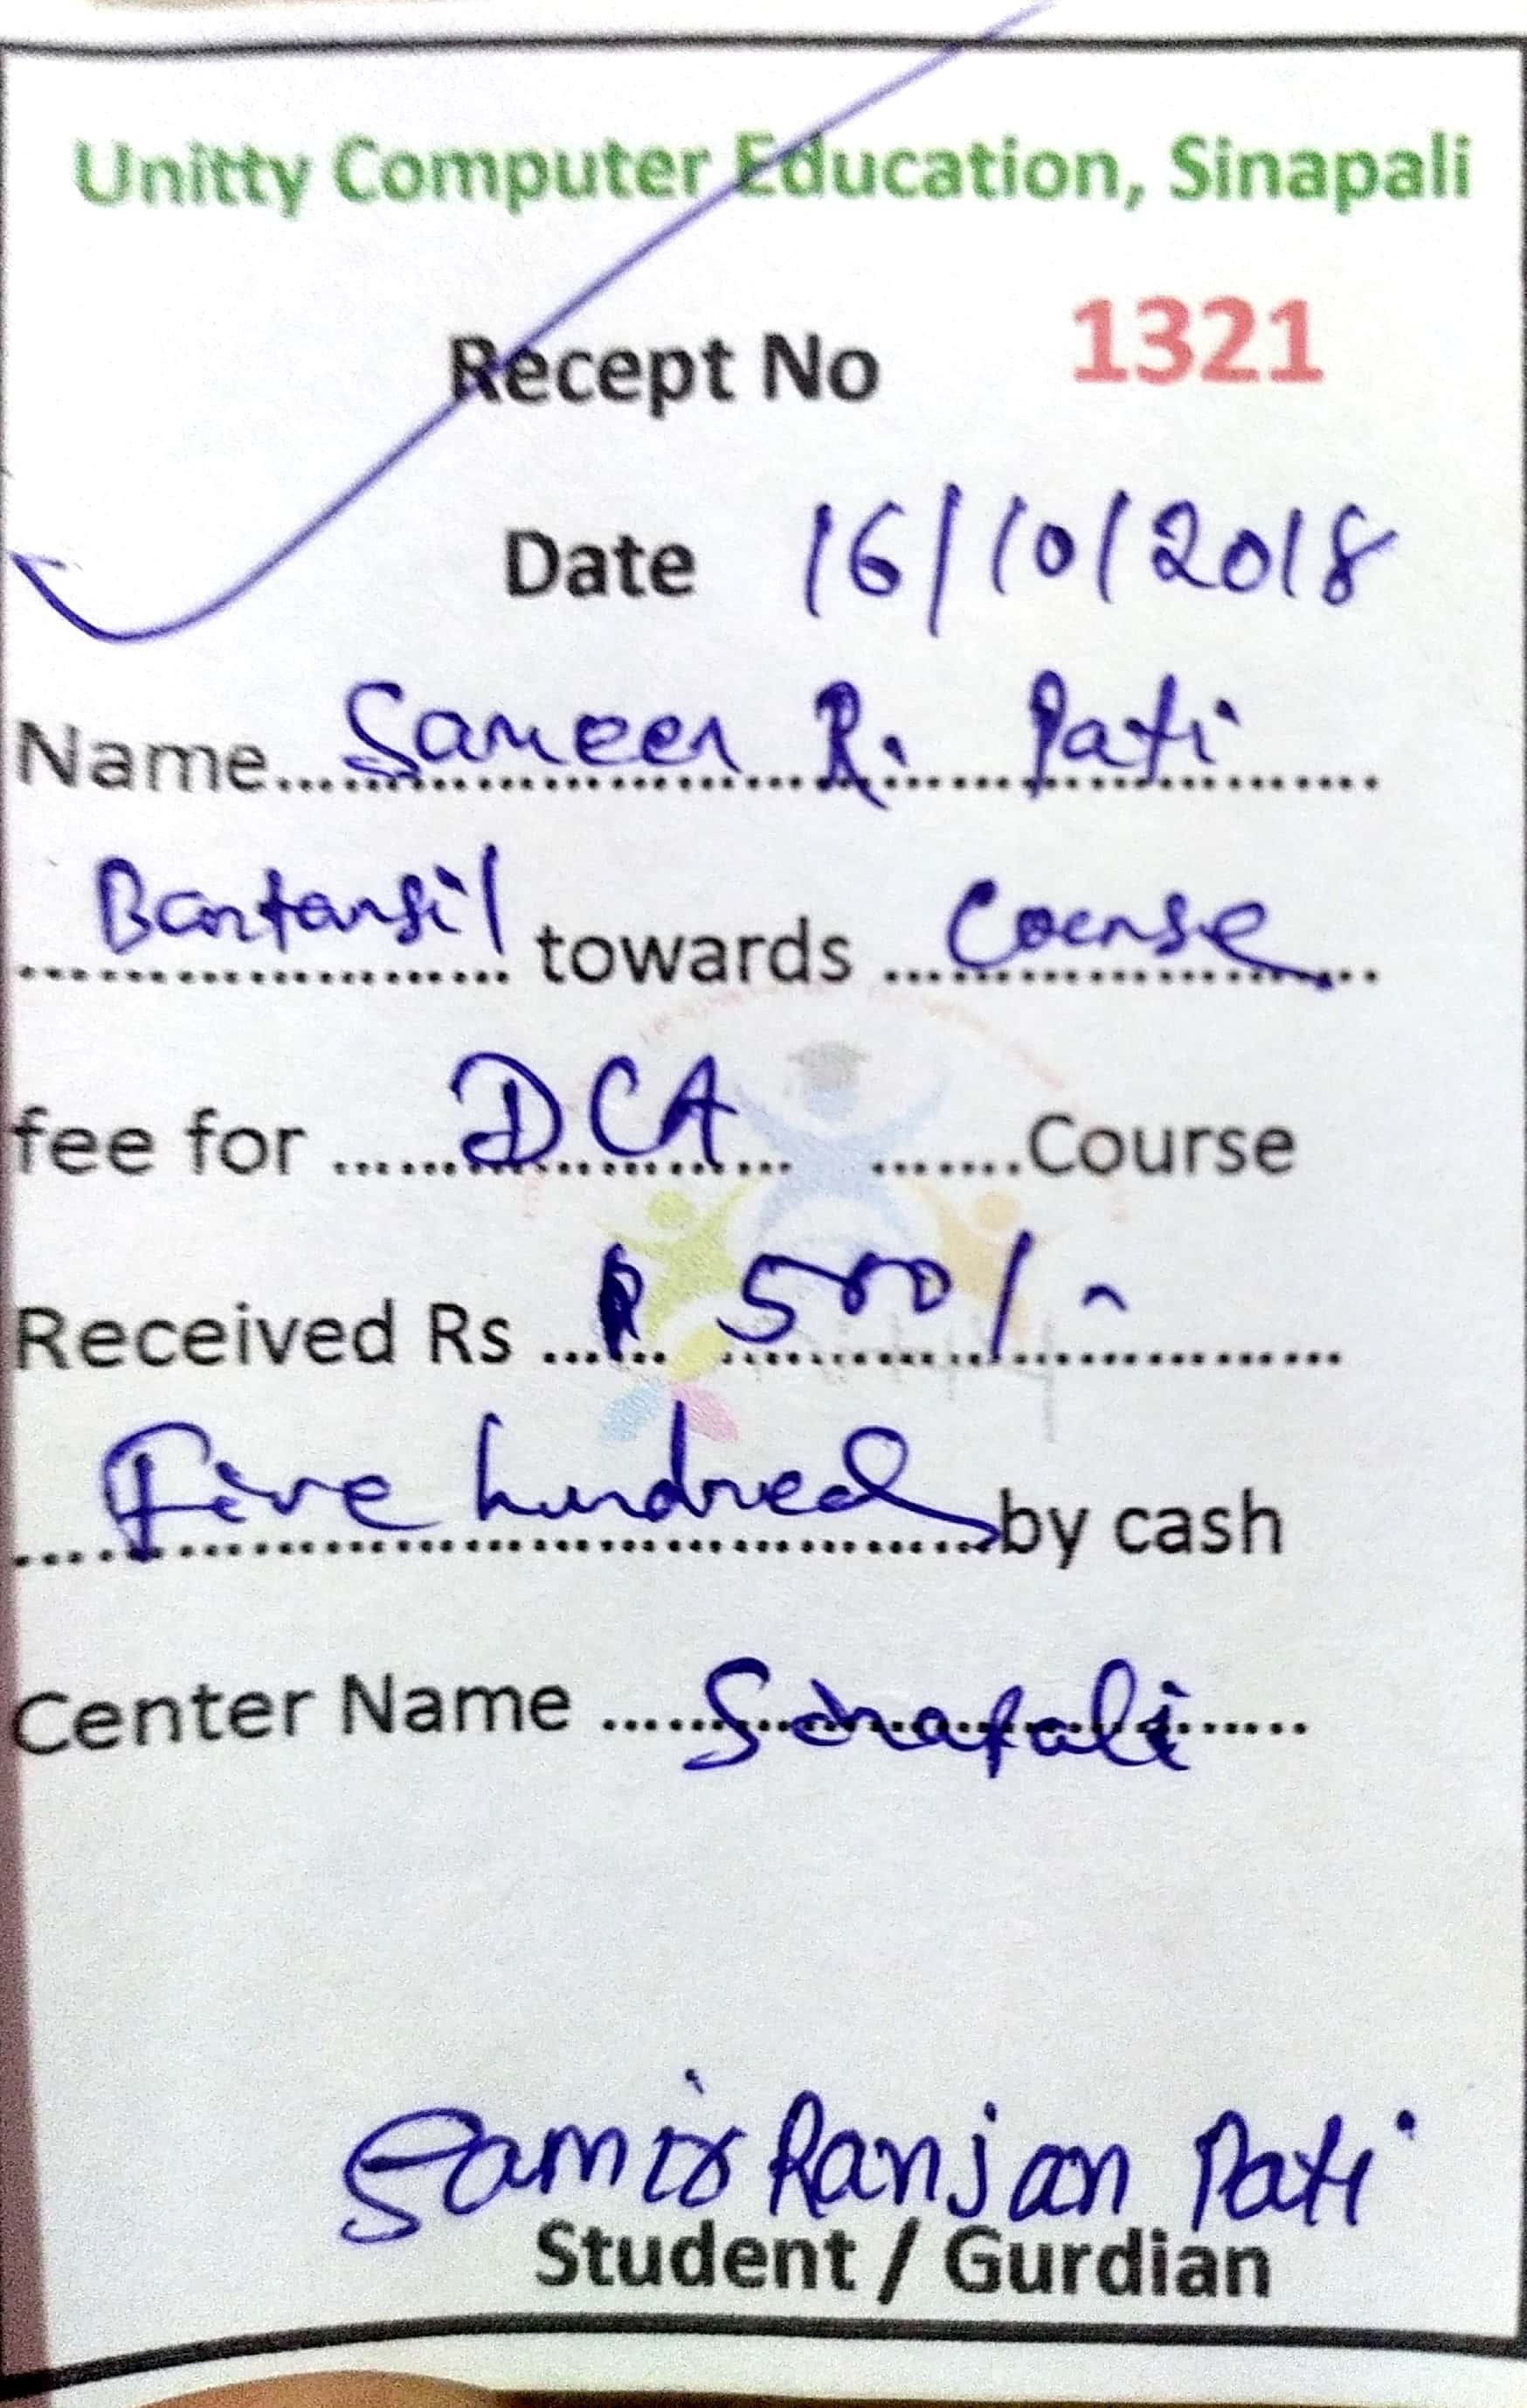 Unitty Computer Education, Sinapali
Recept No 1321
Date 16/10/2018
Name Sameer R. Pati
Bantansil towards Course
fee for DCA Course
Received Rs 500/-
Five hundred by cash
Center Name Sinapali
Samir Ranjan Pati
Student / Gurdian